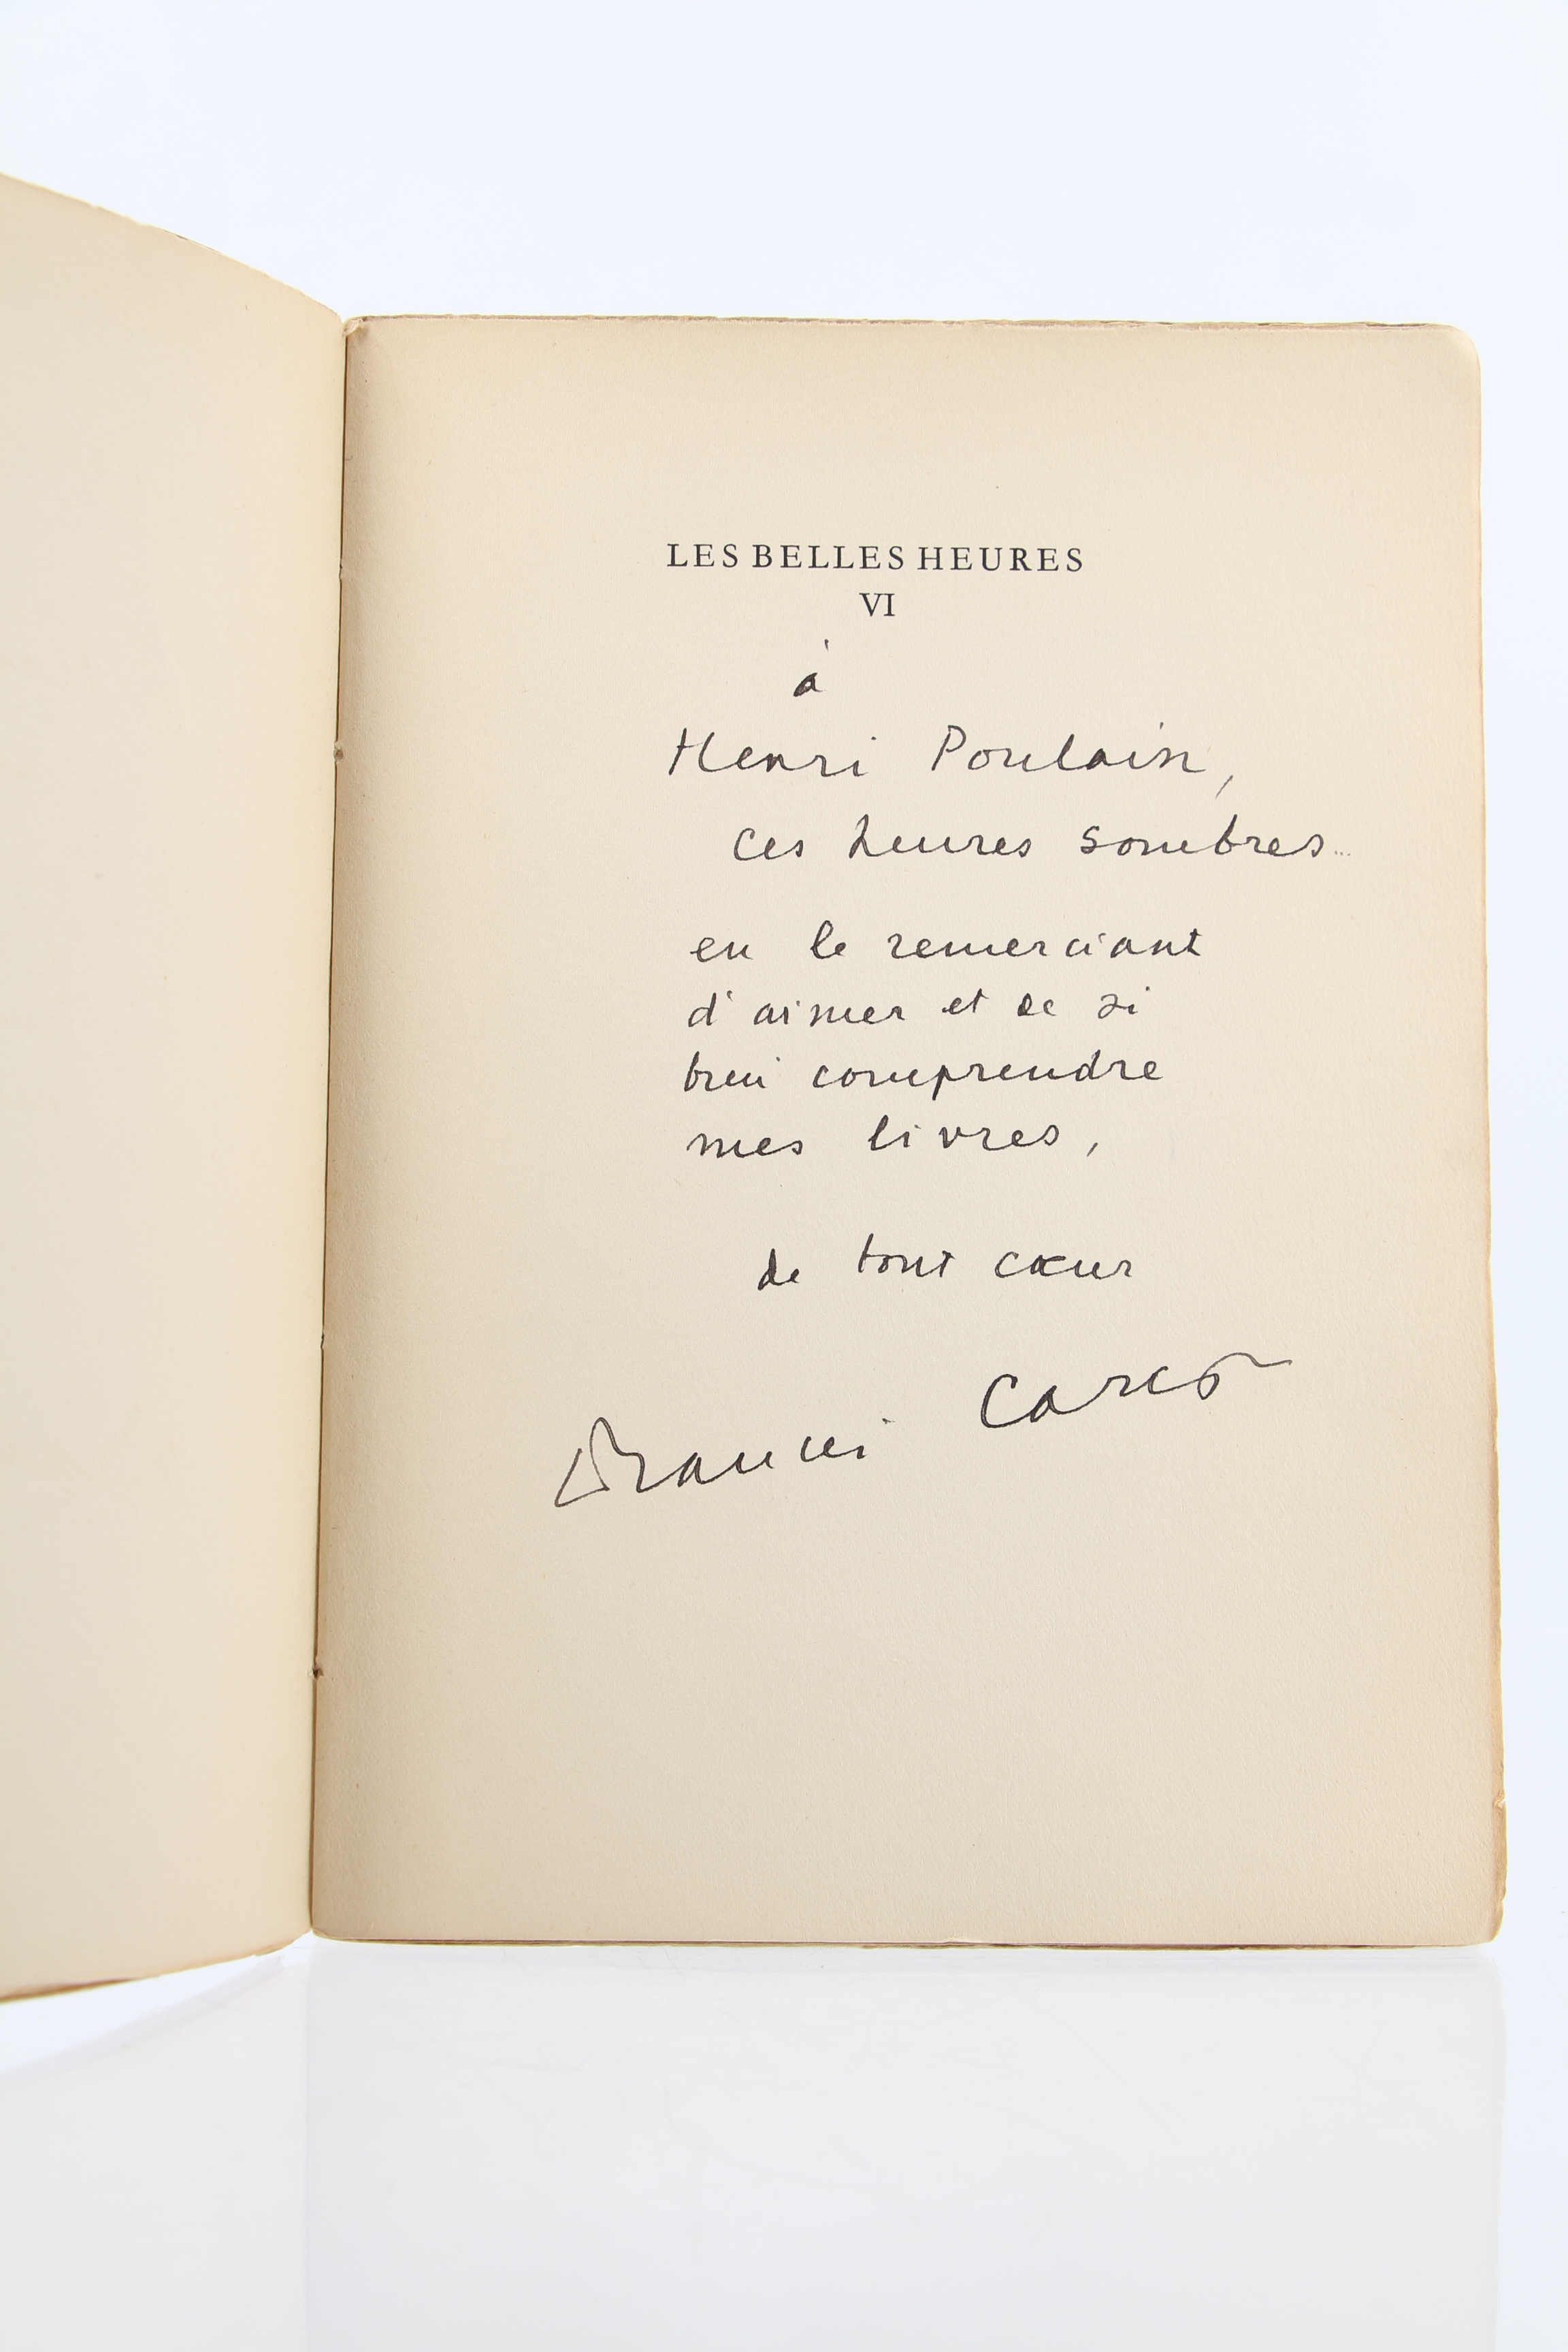 LES BELLES HEURES
VI
à
Henri Poulain,
ces heures sombres...
en le remerciant
d'aimer et de si
bien comprendre
mes livres,
de tout cœur
Francis Carco